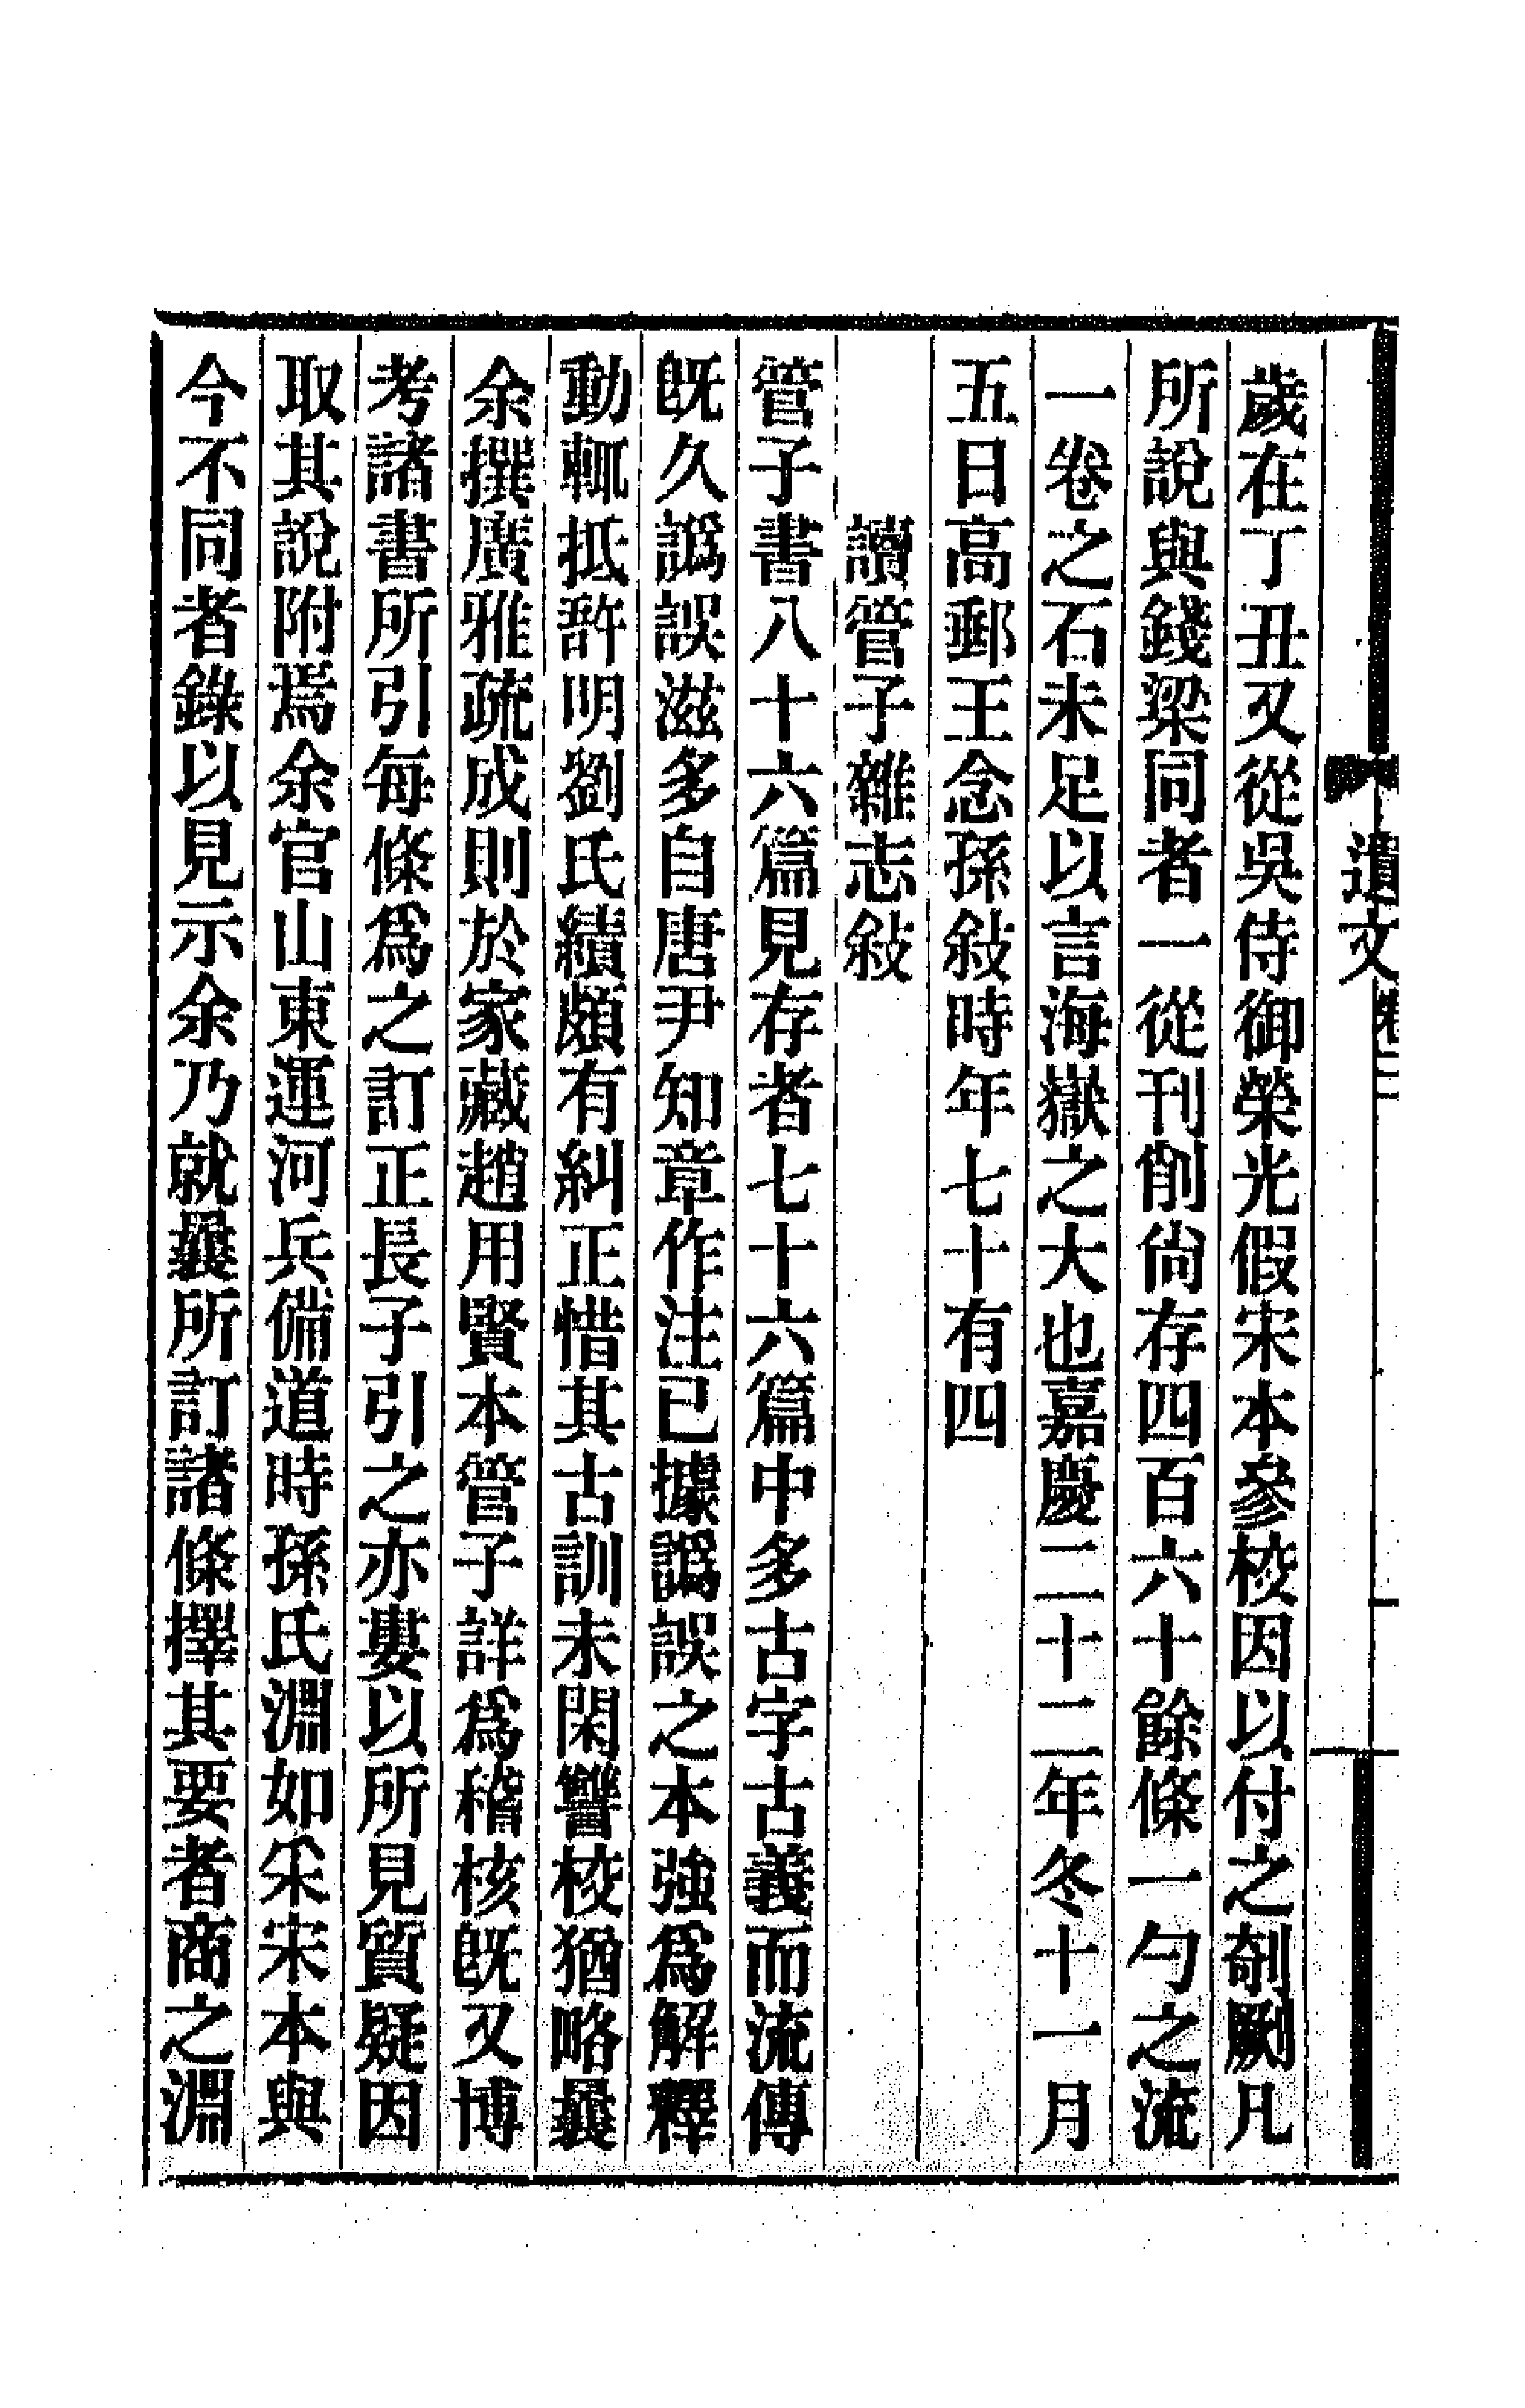 遺文 卷二
歲在丁丑又從吳侍御榮光假宋本參校因以付之剞劂凡
所說與錢梁同者一從刊削尙存四百六十餘條一勺之流
一卷之石未足以言海嶽之大也嘉慶二十二年冬十一月
五日高郵王念孫敍時年七十有四
讀管子雜志敍
管子書八十六篇見存者七十六篇中多古字古義而流傳
旣久譌誤滋多自唐尹知章作注已據譌誤之本強爲解釋
動輒抵訐明劉氏績頗有糾正惜其古訓未閑讐校猶略曩
余撰廣雅疏成則於家藏趙用賢本管子詳爲稽核旣又博
考諸書所引每條爲之訂正長子引之亦婁以所見質疑因
取其說附焉余官山東運河兵備道時孫氏淵如采宋本與
今不同者錄以見示余乃就曩所訂諸條擇其要者商之淵